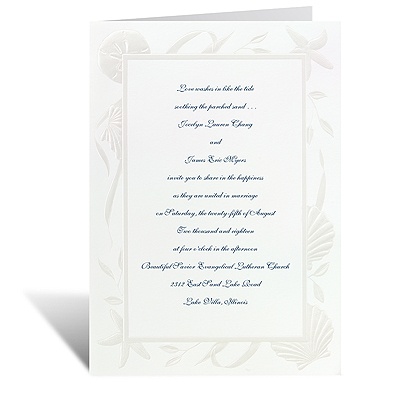 Love washes in like the tide
soothing the parched sand . . .
Jocelyn Lauren Chang
and
James Eric Myers
invite you to share in the happiness
as they are united in marriage
on Saturday, the twenty-fifth of August
Two thousand and eighteen
at four o'clock in the afternoon
Beautiful Savior Evangelical Lutheran Church
2312 East Sand Lake Road
Lake Villa, Illinois